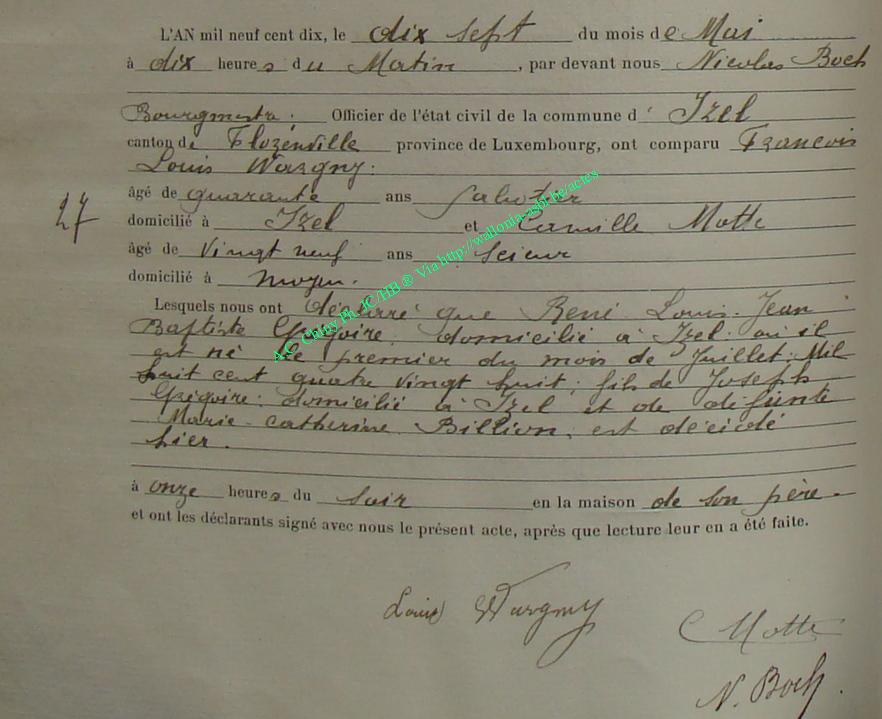 L'AN mil neuf cent dix, le dix sept du mois de Mai
à dix heures du Matin, par devant nous Nicolas Boch
Bourgmestre. Officier de l'état civil de la commune d' Izel
canton de Florenville province de Luxembourg, ont comparu Francois
Louis Wargny.
âgé de quarante ans sabotier
27
domicilié à Izel et Camille Motte
âgé de vingt neuf ans Scieur
domicilié à moyen.
Lesquels nous ont déclaré que René Louis Jean
Baptiste Grégoire, domicilié à Izel où il
est né le premier du mois de Juillet Mil
huit cent quatre vingt huit, fils de Joseph
Grégoire domicilié à Izel et de défunte
Marie Catherine Billion, est décédé
hier.
à onze heures du soir en la maison de son père.
et ont les déclarants signé avec nous le présent acte, après que lecture leur en a été faite.
Louis Wargny
C Motte
N. Boch.
A.C Chiny Ph. JC/HB ® Via http://wallonia-asbl.be/actes